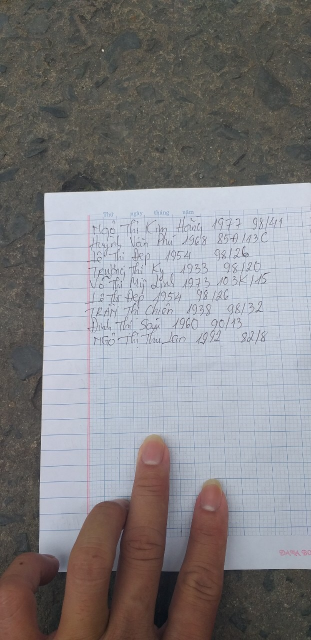 Ngô Thị Kim Hoàng 1977 98/41
Huỳnh Văn Phú 1968 85A/13C
Lê Thị Đẹp 1954 98/26
Trương Thị Kỵ 1933 98/20
Võ Thị Mỹ Linh 1973 103K/15
Lê Thị Đẹp 1954 98/26
TRẦN Thị Chiên 1938 98/32
Đinh Thị Sái 1960 90/13
NGÔ Thị Thu Lan 1992 82/8